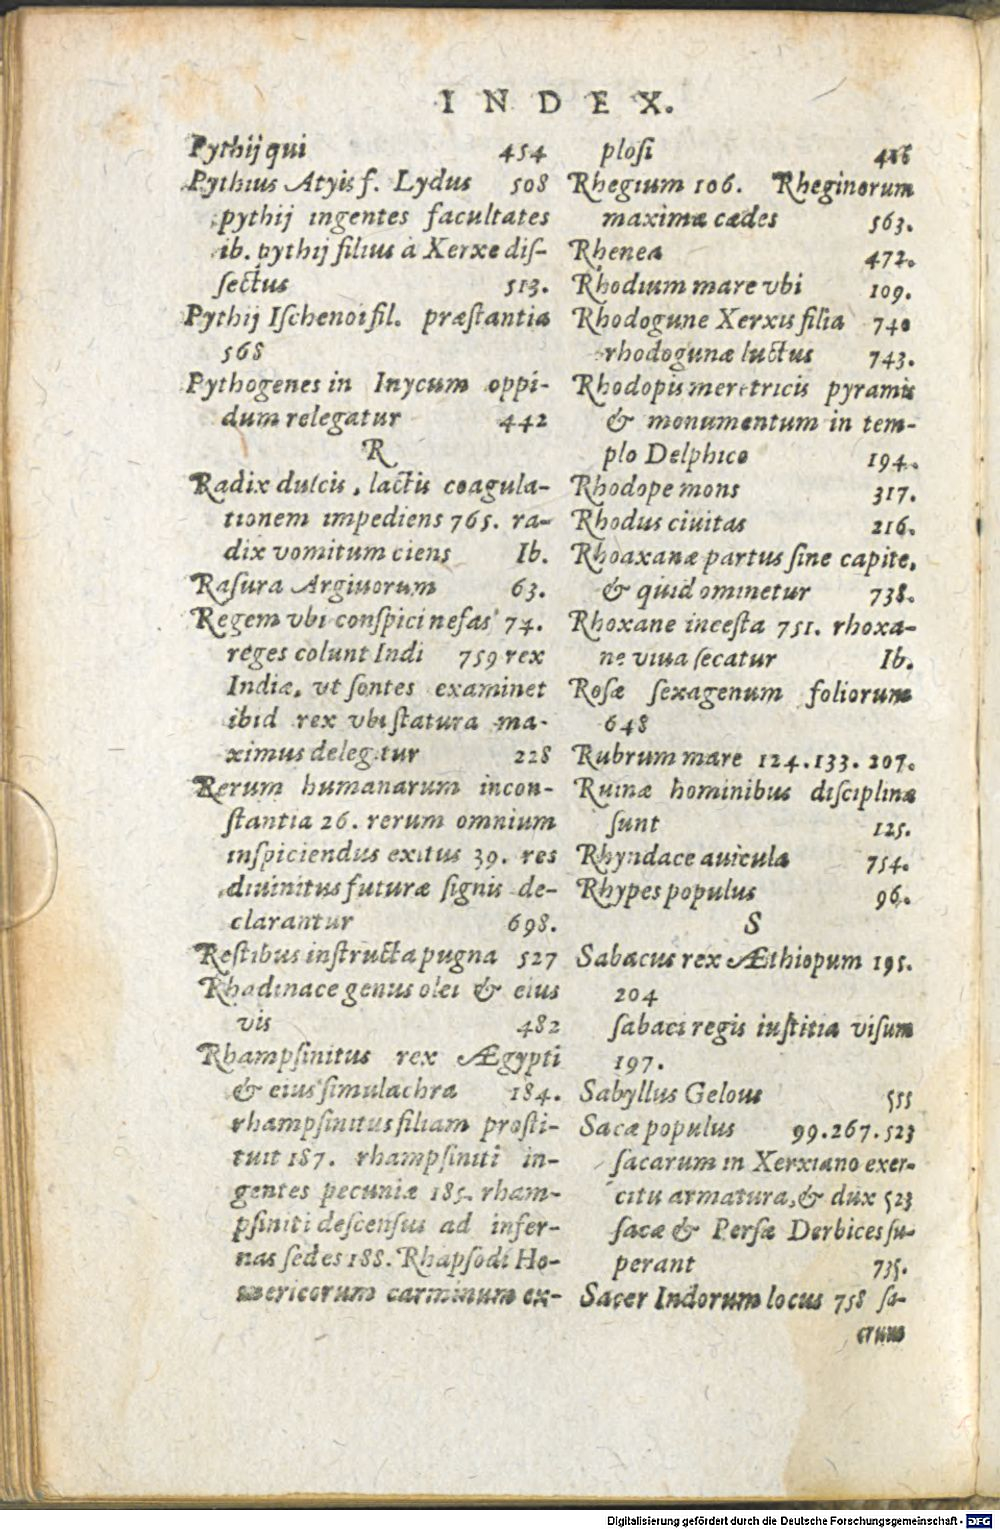 INDEX.
Pythij qui 454
Pythius Atyis f. Lydus 508
pythij ingentes facultates
ib. pythij filius à Xerxe dis-
sectus 513.
Pythij Ischenoi fil. præstantia
568
Pythogenes in Inycum oppi-
dum relegatur 442
R
Radix dulcis, lactis coagula-
tionem impediens 765. ra-
dix vomitum ciens Ib.
Rasura Argiuorum 63.
Regem vbi conspici nefas 74.
reges colunt Indi 759 rex
Indiæ, vt sontes examinet
ibid rex vbi statura ma-
ximus delegitur 228
Rerum humanarum incon-
stantia 26. rerum omnium
inspiciendus exitus 39. res
diuinitus futuræ signis de-
clarantur 698.
Restibus instructa pugna 527
Rhadinace genus olei & eius
vis 482
Rhampsinitus rex Ægypti
& eius simulachra 184.
rhampsinitus filiam prosti-
tuit 187. rhampsiniti in-
gentes pecuniæ 185. rham-
psiniti descensus ad infer-
nas sedes 188. Rhapsodi Ho-
mericorum carminum ex-
plosi
Rhegium 106. Rheginorum
maxima cædes 563.
Rhenea 472.
Rhodium mare vbi 109.
Rhodogune Xerxis filia 740
rhodogunæ luctus 743.
Rhodopis meretricis pyramis
& monumentum in tem-
plo Delphico 194.
Rhodope mons 317.
Rhodus ciuitas 216.
Rhoaxanæ partus sine capite,
& quid ominetur 738.
Rhoxane incesta 751. rhoxa-
ne viua secatur Ib.
Rosæ sexagenum foliorum
648
Rubrum mare 124.133.207.
Ruinæ hominibus disciplina
sunt 125.
Rhyndace auicula 754.
Rhypes populus 96.
S
Sabacus rex Æthiopum 195.
204
sabaci regis iustitia visum
197.
Sabyllus Gelous 555
Sacæ populus 99.267.523
sacarum in Xerxiano exer-
citu armatura, & dux 523
sacæ & Persæ Derbices su-
perant 735.
Sacer Indorum locus 758 sa-
crum
Digitalisierung gefördert durch die Deutsche Forschungsgemeinschaft - DFG